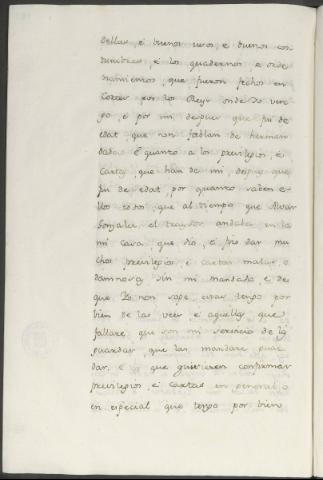 dellas, é buenos usos, e buenas cos
tumbres, é los quadernos, e orde
namientos, que fueron fechos en
Cortes por los Reyes onde Yo ven
go, é por mi despues que fui de
edat, que non fablan de herman
dades. E quanto a los previlegios, é
Cartas, que han de mi, despues que
fui de edat, por quanto saben e-
llos todos, que al tiempo que Alvar
Gonzalez el traydor andaba en la
mi Casa, que dió, é fizo dar mu
chos previlegios, é cartas malas, e
dannosas, sin mi mandado, e de
que Yo non sope, estas tengo por
bien de las veer, é aquellas que
fallare, que son mi servicio de las
guardar, que las mandaré guar
dar. E si que quisieren confirmar
previlegios, é cartas en general, o
en especial, que tengo por bien